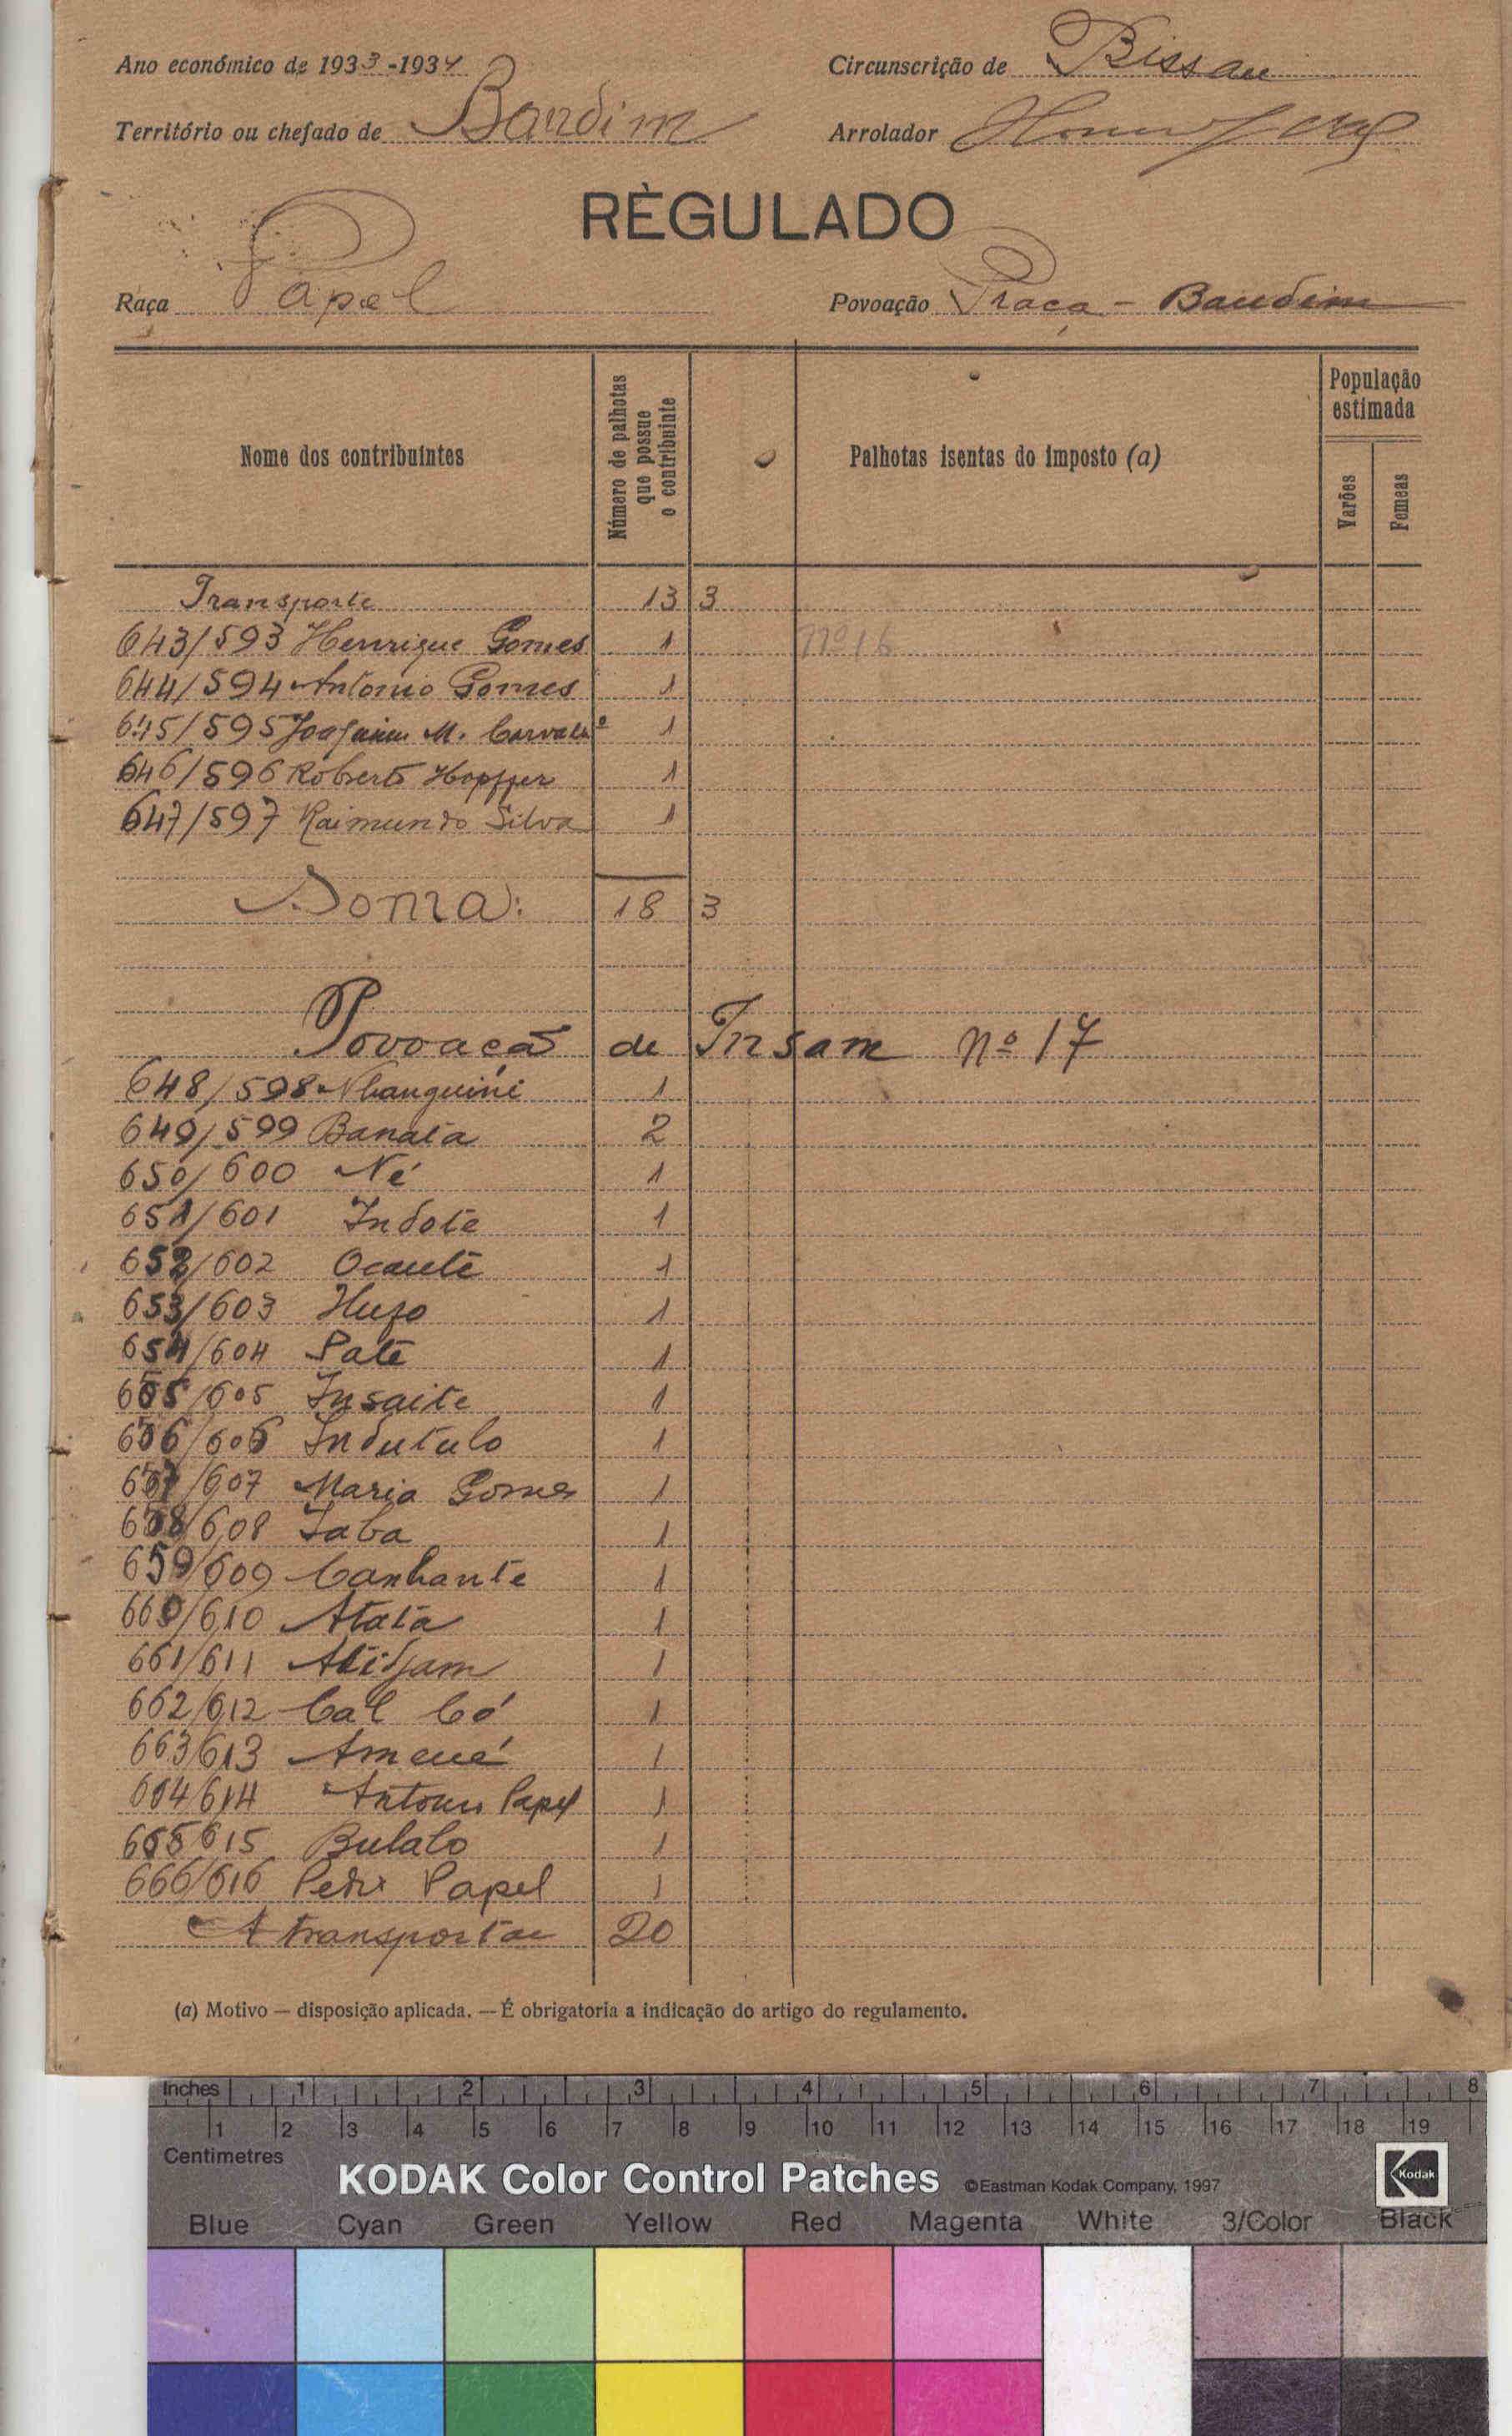 Ano económico de 1933-1934 Circunscrição de Bissau
Território ou chefado de Bandim Arrolador
RÈGULADO
Raça Papel Povoação Praça - Bandim
Nome dos contribuintes Número de palhotas que possue o contribuinte Palhotas isentas do imposto (a) População estimada Varões Femeas
Transporte 13 3
643/593 Henrique Gomes 1 nº 16
644/594 Antonio Gomes 1
645/595 Joaquim M. Carvalho 1
646/596 Roberto Hopffer 1
647/597 Raimundo Silva 1
Soma: 18 3
Povoação de Insam nº 17
648/598 Nhanguini 1
649/599 Banata 2
650/600 Né 1
651/601 Indote 1
652/602 Ocante 1
653/603 Hugo 1
654/604 Pate 1
655/605 Insaite 1
656/606 Indutulo 1
657/607 Maria Gomes 1
658/608 Iaba 1
659/609 Canhante 1
660/610 Atata 1
661/611 1
662/612 Cal Có 1
663/613 1
664/614 Antonio Papel 1
665/615 Bulalo 1
666/616 Pedro Papel 1
A transportar 20
(a) Motivo — disposição aplicada. — É obrigatoria a indicação do artigo do regulamento.
Inches 1 2 3 4 5 6 7 8
1 2 3 4 5 6 7 8 9 10 11 12 13 14 15 16 17 18 19
Centimetres
KODAK Color Control Patches ©Eastman Kodak Company, 1997 Kodak
Blue Cyan Green Yellow Red Magenta White 3/Color Black